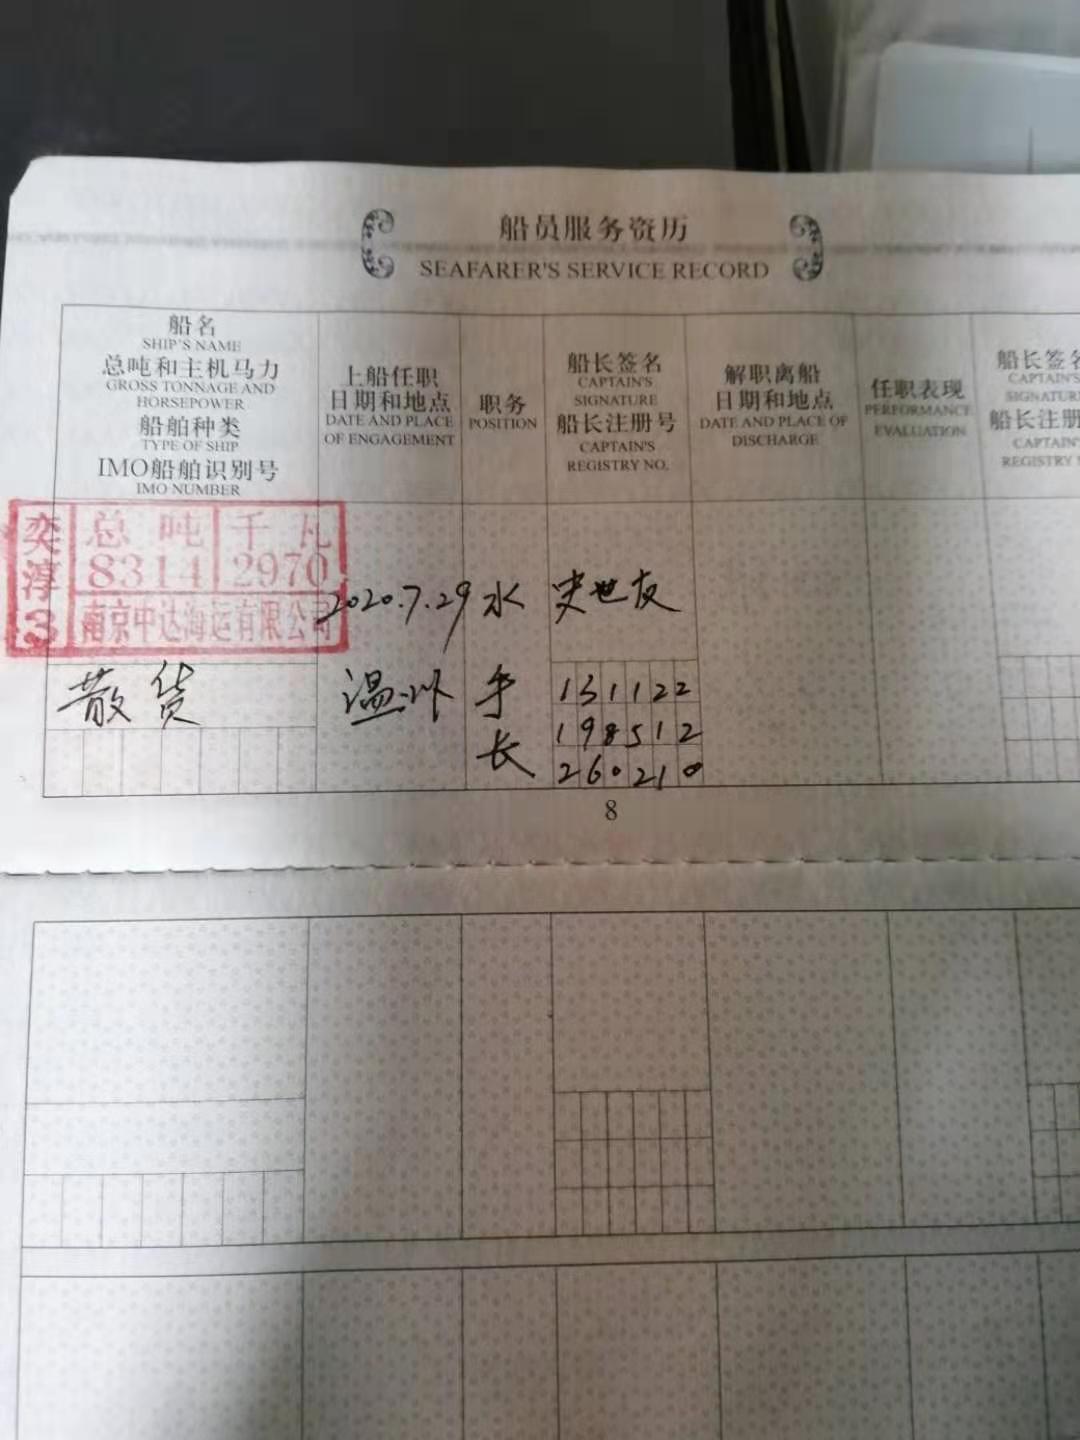 船员服务资历
SEAFARER'S SERVICE RECORD
船名
SHIP'S NAME
总吨和主机马力
GROSS TONNAGE AND
HORSEPOWER
船舶种类
TYPE OF SHIP
IMO船舶识别号
IMO NUMBER
上船任职
日期和地点
DATE AND PLACE
OF ENGAGEMENT
职务
POSITION
船长签名
CAPTAIN'S
SIGNATURE
船长注册号
CAPTAIN'S
REGISTRY NO.
解职离船
日期和地点
DATE AND PLACE OF
DISCHARGE
任职表现
PERFORMANCE
EVALUATION
船长签名
CAPTAIN'S
SIGNATURE
船长注册
CAPTAIN'
REGISTRY
奕淳3
总吨 千瓦
8314 2970
南京中达海运有限公司
散货
2020.7.29
温州
水
手
长
史世友
131122
198512
260210
8